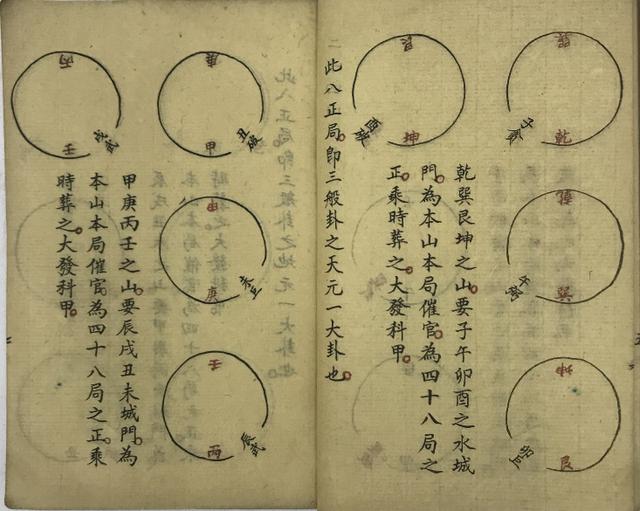 巽
子
乾
乾
午
巽
坤
卯巨
艮
艮
酉破
坤
乾巽艮坤之山要子午卯酉之水城
門為本山本局催官為四十八局之
正乘時葬之大發科甲
此八正局即三般卦之天元一大卦也
庚
丑破
甲
甲
未巨
庚
壬
辰武
丙
丙
戌武
壬
甲庚丙壬之山要辰戌丑未城門為
本山本局催官為四十八局之正乘
時葬之大發科甲